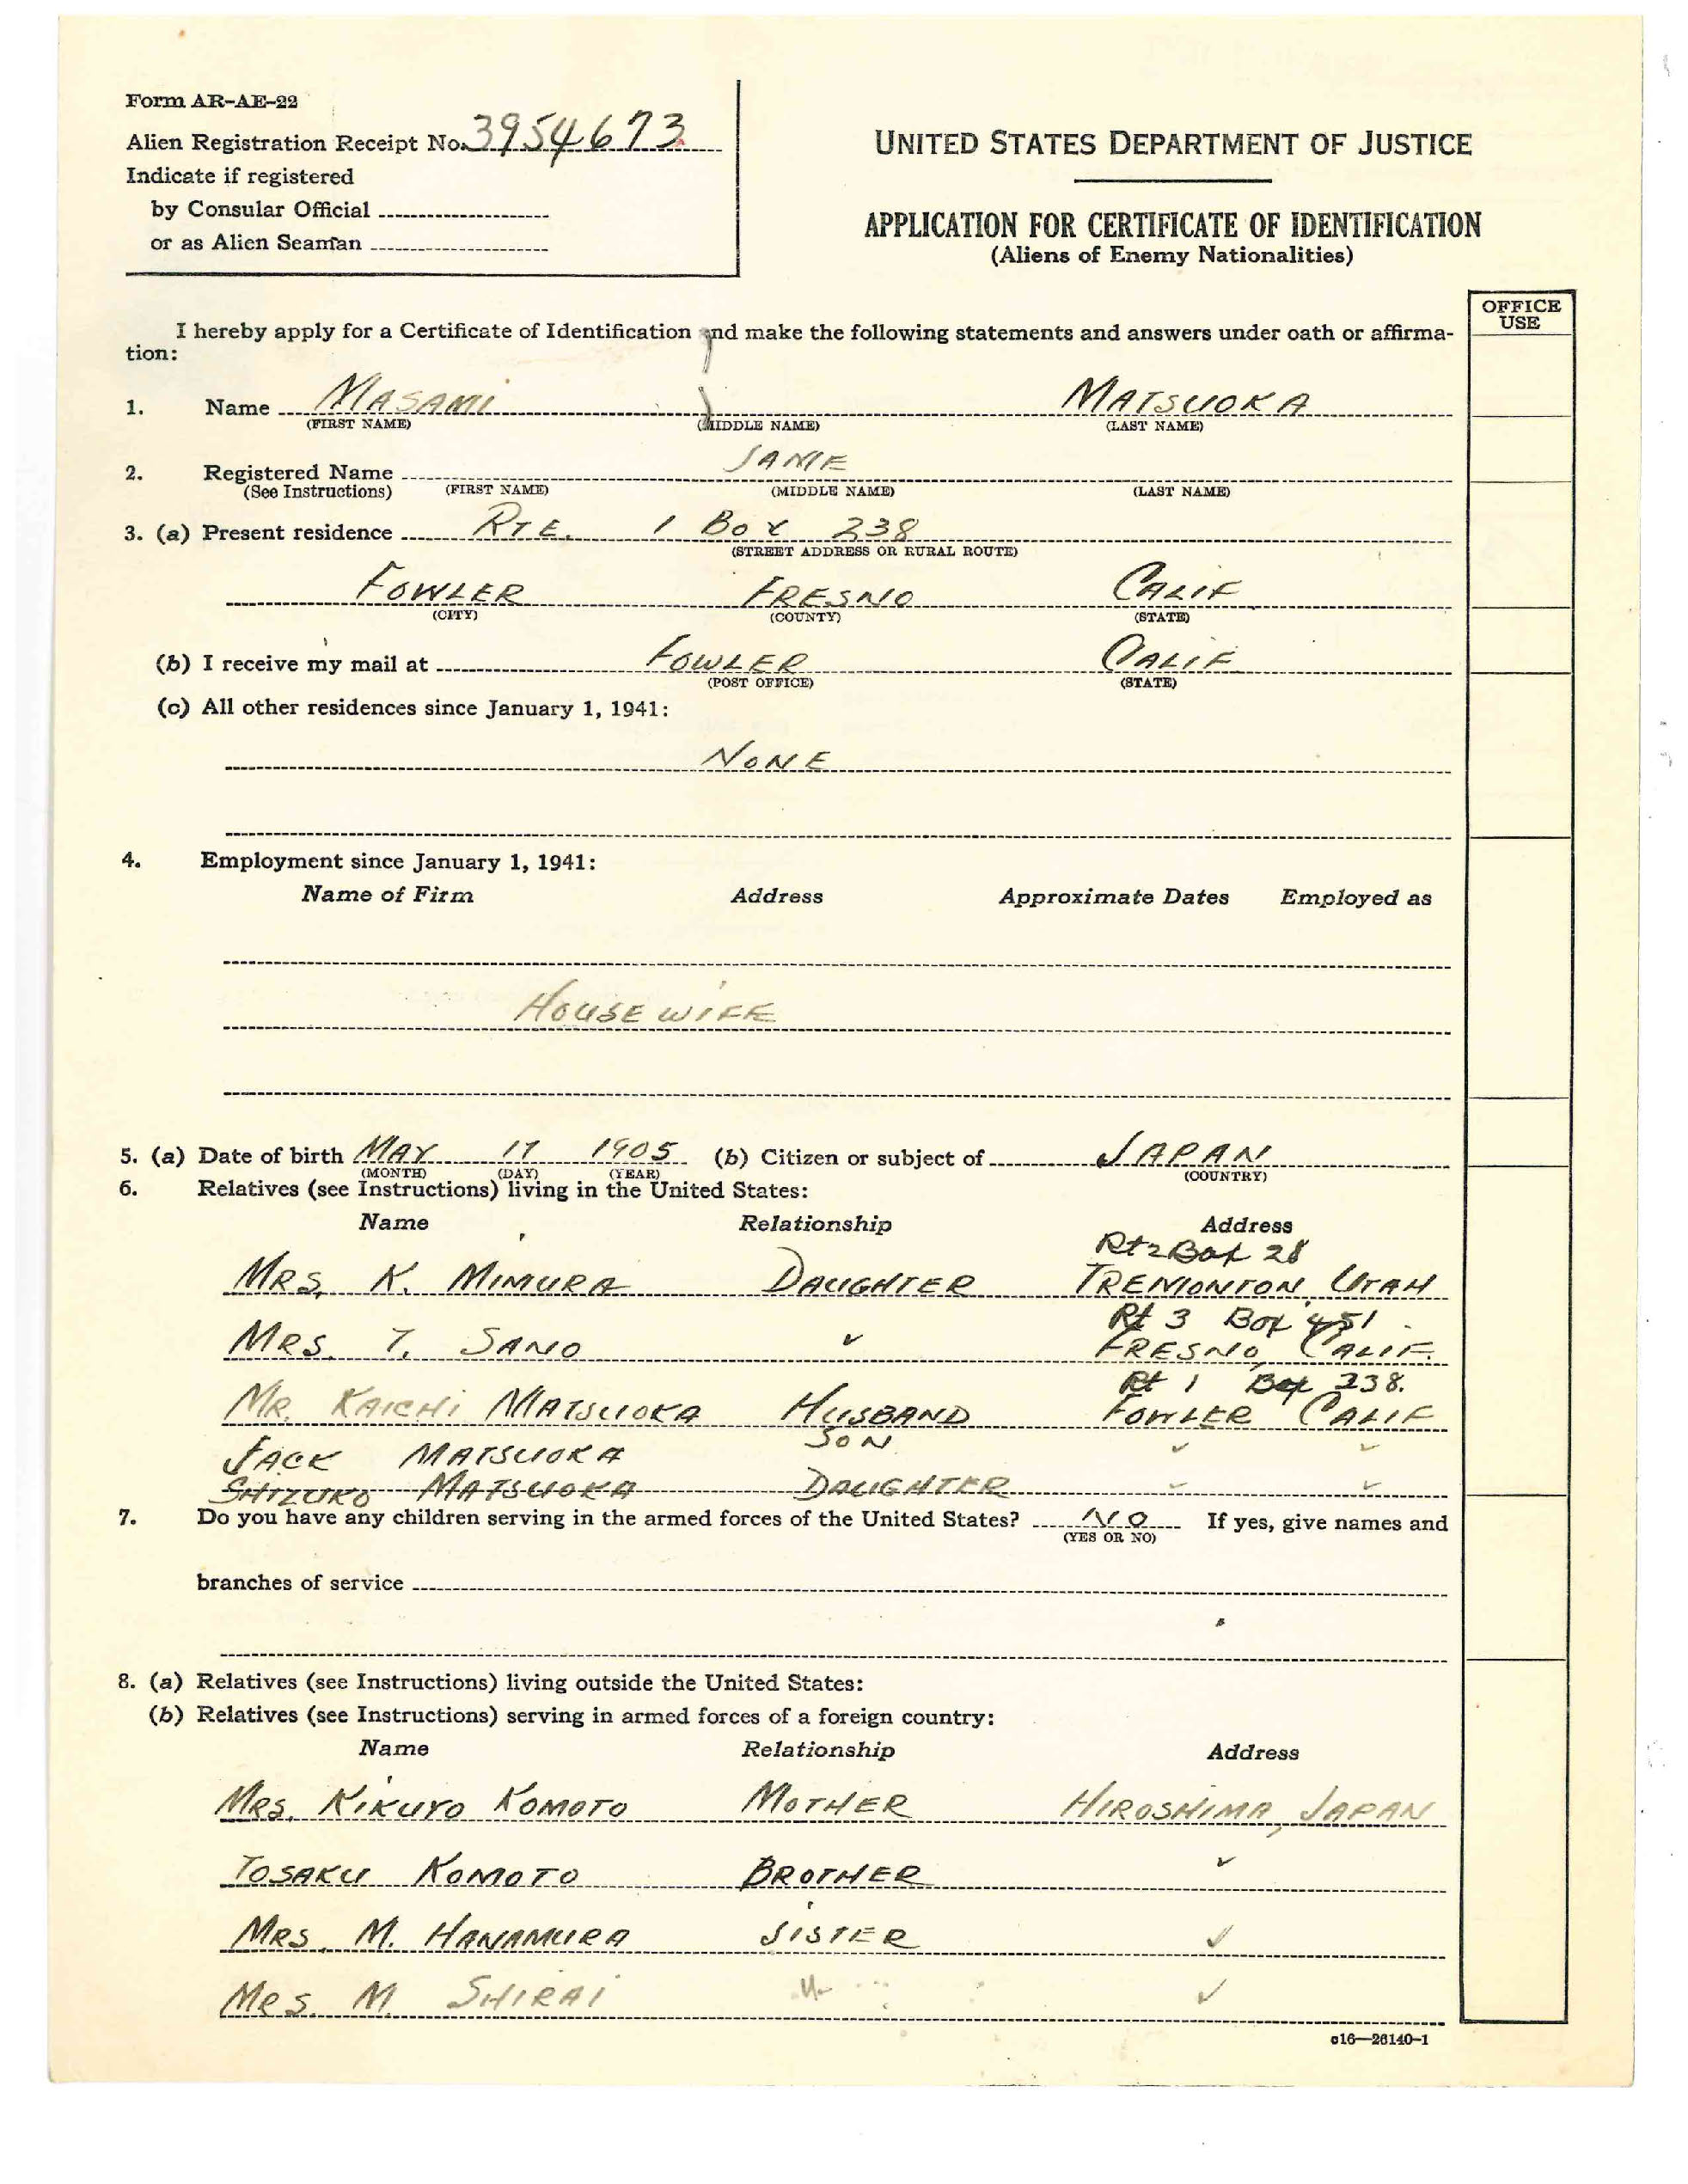 Form AR-AE-22
Alien Registration Receipt No. 3954673
Indicate if registered
by Consular Official
or as Alien Seaman
UNITED STATES DEPARTMENT OF JUSTICE
APPLICATION FOR CERTIFICATE OF IDENTIFICATION
(Aliens of Enemy Nationalities)
OFFICE
USE
I hereby apply for a Certificate of Identification and make the following statements and answers under oath or affirma-
tion:
1. Name MASAMI MATSUOKA
(FIRST NAME) (MIDDLE NAME) (LAST NAME)
2. Registered Name SAME
(See Instructions) (FIRST NAME) (MIDDLE NAME) (LAST NAME)
3. (a) Present residence RTE. 1 BOX 238
(STREET ADDRESS OR RURAL ROUTE)
FOWLER FRESNO CALIF
(CITY) (COUNTY) (STATE)
(b) I receive my mail at FOWLER CALIF
(POST OFFICE) (STATE)
(c) All other residences since January 1, 1941:
NONE
4. Employment since January 1, 1941:
Name of Firm Address Approximate Dates Employed as
HOUSE WIFE
5. (a) Date of birth MAY 17 1905 (b) Citizen or subject of JAPAN
(MONTH) (DAY) (YEAR) (COUNTRY)
6. Relatives (see Instructions) living in the United States:
Name Relationship Address
Rt 2 Box 28
MRS. K. MIMURA DAUGHTER TREMONTON, UTAH
Rt 3 Box 451
MRS. T. SANO ✓ FRESNO, CALIF.
Rt 1 Box 238.
MR. KAICHI MATSUOKA HUSBAND FOWLER CALIF
JACK MATSUOKA SON ✓ ✓
SHIZUKO MATSUOKA DAUGHTER ✓ ✓
7. Do you have any children serving in the armed forces of the United States? NO If yes, give names and
(YES OR NO)
branches of service
8. (a) Relatives (see Instructions) living outside the United States:
(b) Relatives (see Instructions) serving in armed forces of a foreign country:
Name Relationship Address
MRS. KIKUYO KOMOTO MOTHER HIROSHIMA, JAPAN
TOSAKU KOMOTO BROTHER ✓
MRS. M. HANAMURA SISTER ✓
MRS. M. SHIRAI ✓
c16—26140-1